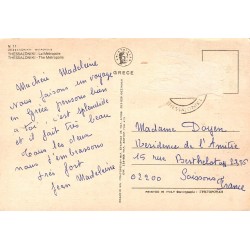 N. 11
THESSALONIKI - La Métropole
THESSALONIKI - The Métropolis
GREECE
Ma chérie Madeleine
Nous faisons un voyage
en Grèce pensons bien
à toi, c'est splendide
et il fait très beau
Tous les deux
nous t'embrassons
très fort
Jean Madeleine
Madame Doyen
Residence de l'Amitié
15 rue Berthelot
02200 Soissons
France